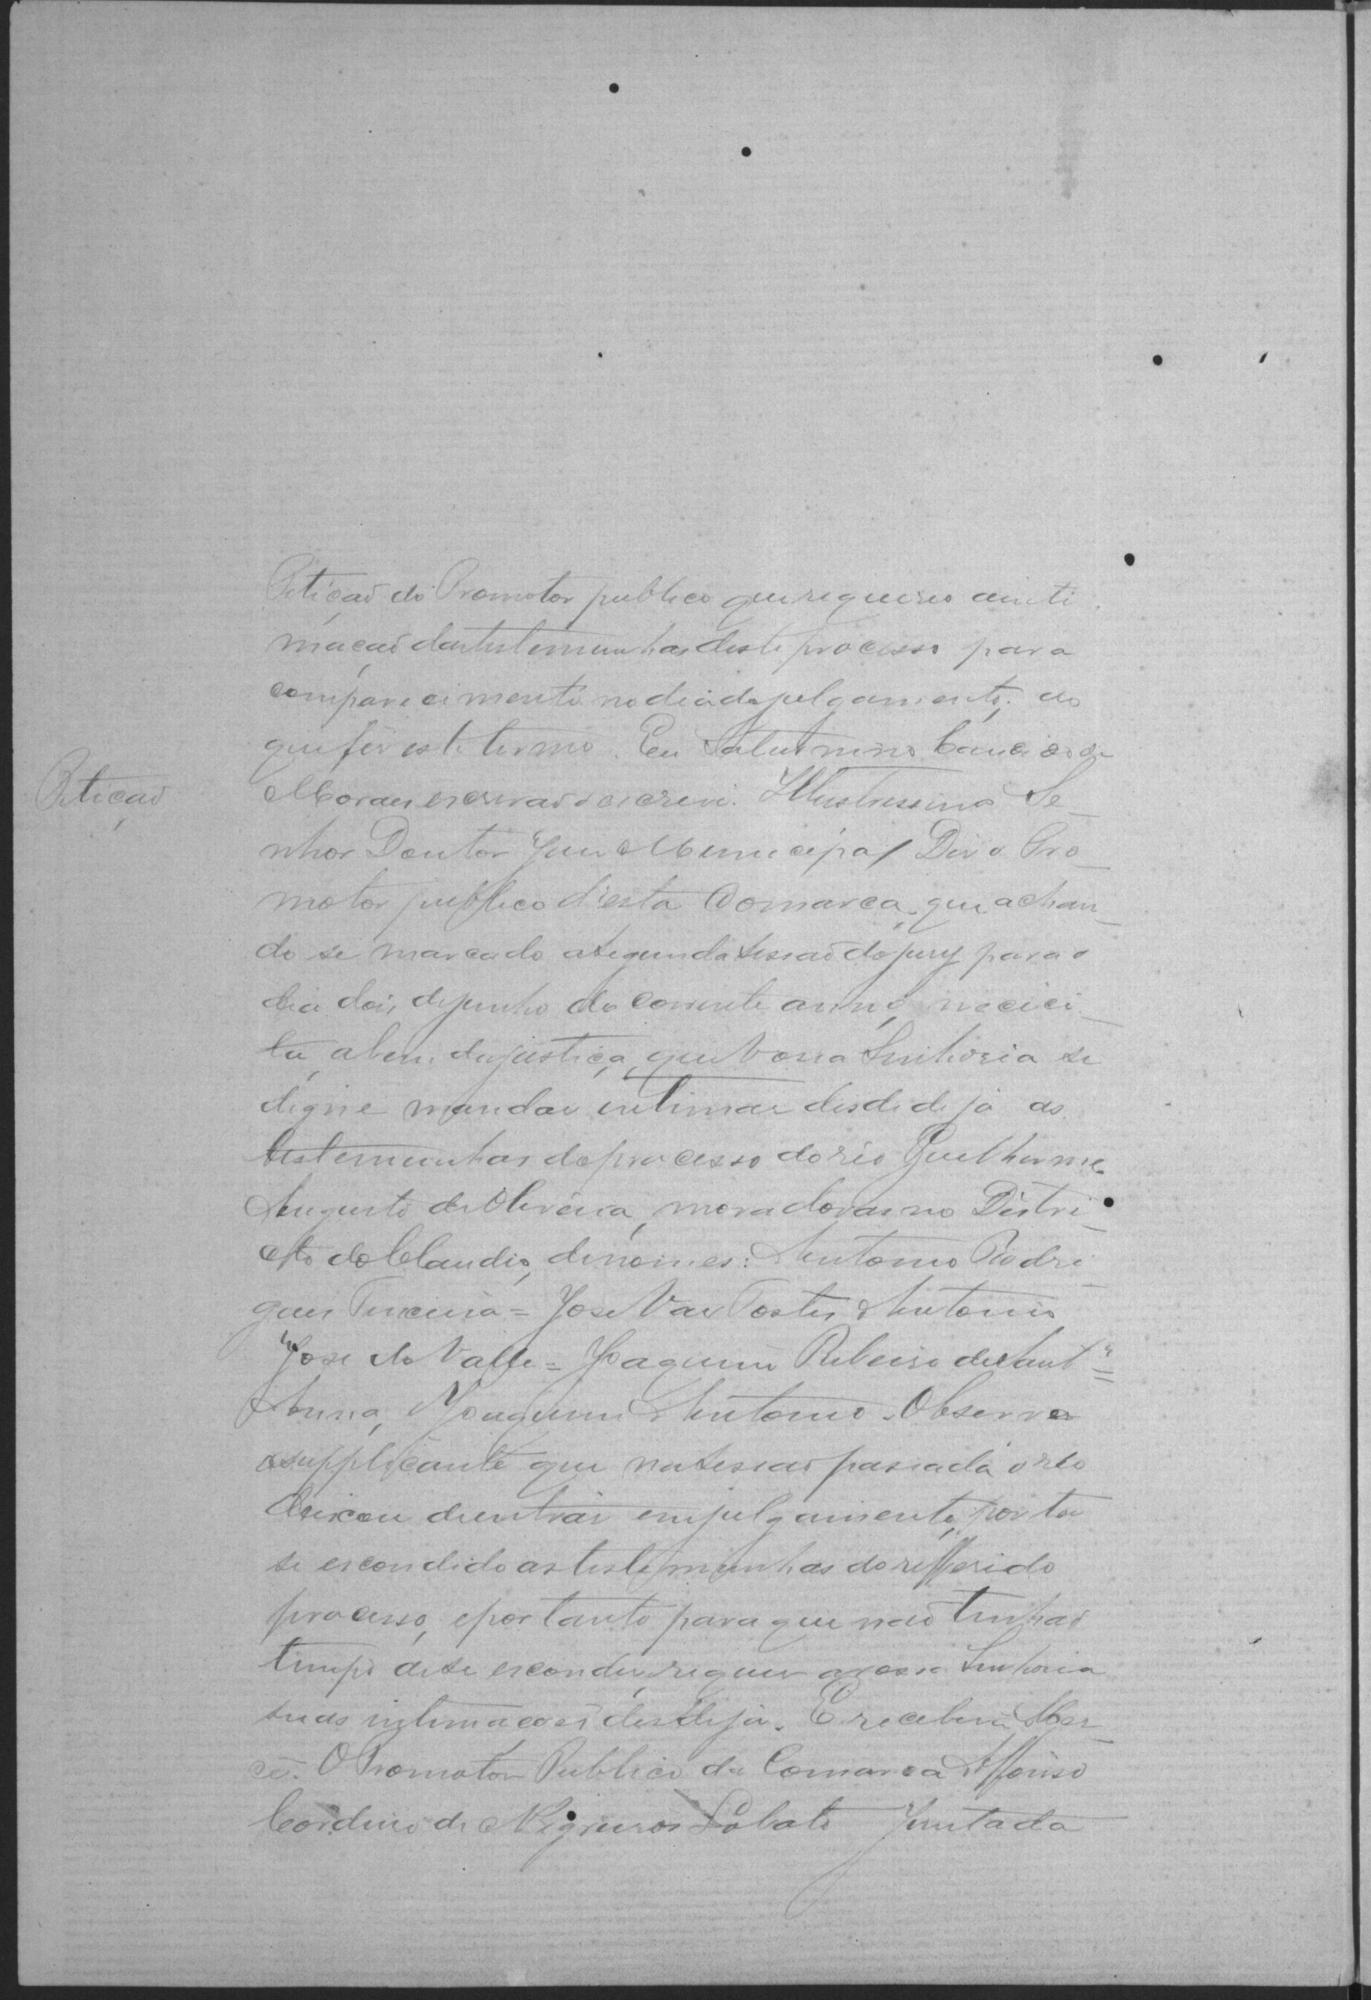 Petição do Promotor publico que requereo a inti
mação das testemunhas deste processo para
comparecimento no dia do julgamento; do
que fiz este termo. Eu Saturnino Cancio de
Petição
Moraes escrivão o escrevi. Illustrissimo Se-
nhor Doutor Juiz Municipal Diz o Pro-
motor publico d'esta Comarca, que achan-
do se marcado a segunda sessão do jury para o
dia dois de junho do corrente anno, nececi-
ta, a bem da justiça, que Vossa Senhoria se
digne mandar intimar desde de já as
testemunhas do processo do réo Guilherme
Augusto de Oliveira, moradoras no Distri-
cto do Claudio, de nomes: Antonio Rodri-
gues Teixeira = Jose Vaz Tostes Antonio
Jose do Valle = Joaquim Ribeiro de Sant"=
Anna, Joaquim Antonio. Observa
o supplicante que na sessão passada o réo
deixou de entrar em julgamento, por ter
se escondido as testemunhas do refferido
processo, e portanto para que não tenhão
tempo de se esconder, requer a vossa Senhoria
suas intimações desde já. E receberá Mer-
cê. O Promotor Publico da Comarca Affonso
Cordeiro de Negreiros Lobato Juntada